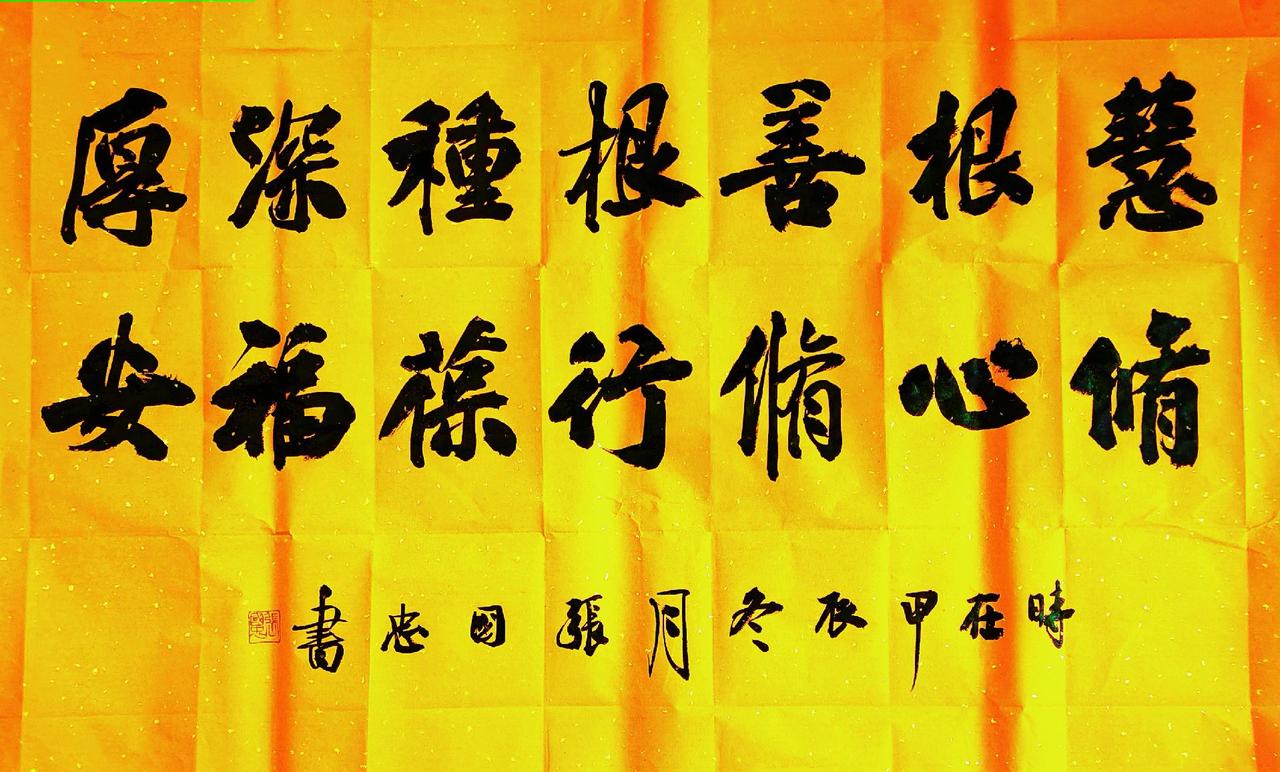 慧根善根種深厚
脩心脩行葆福安
時在甲辰冬月張國忠書